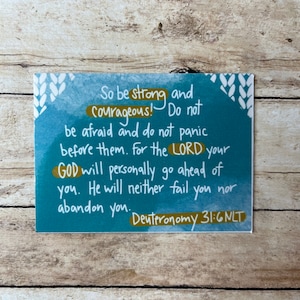 So be strong and
courageous! Do not
be afraid and do not panic
before them. For the LORD your
GOD will personally go ahead of
you. He will neither fail you nor
abandon you.
Deuteronomy 31:6 NLT